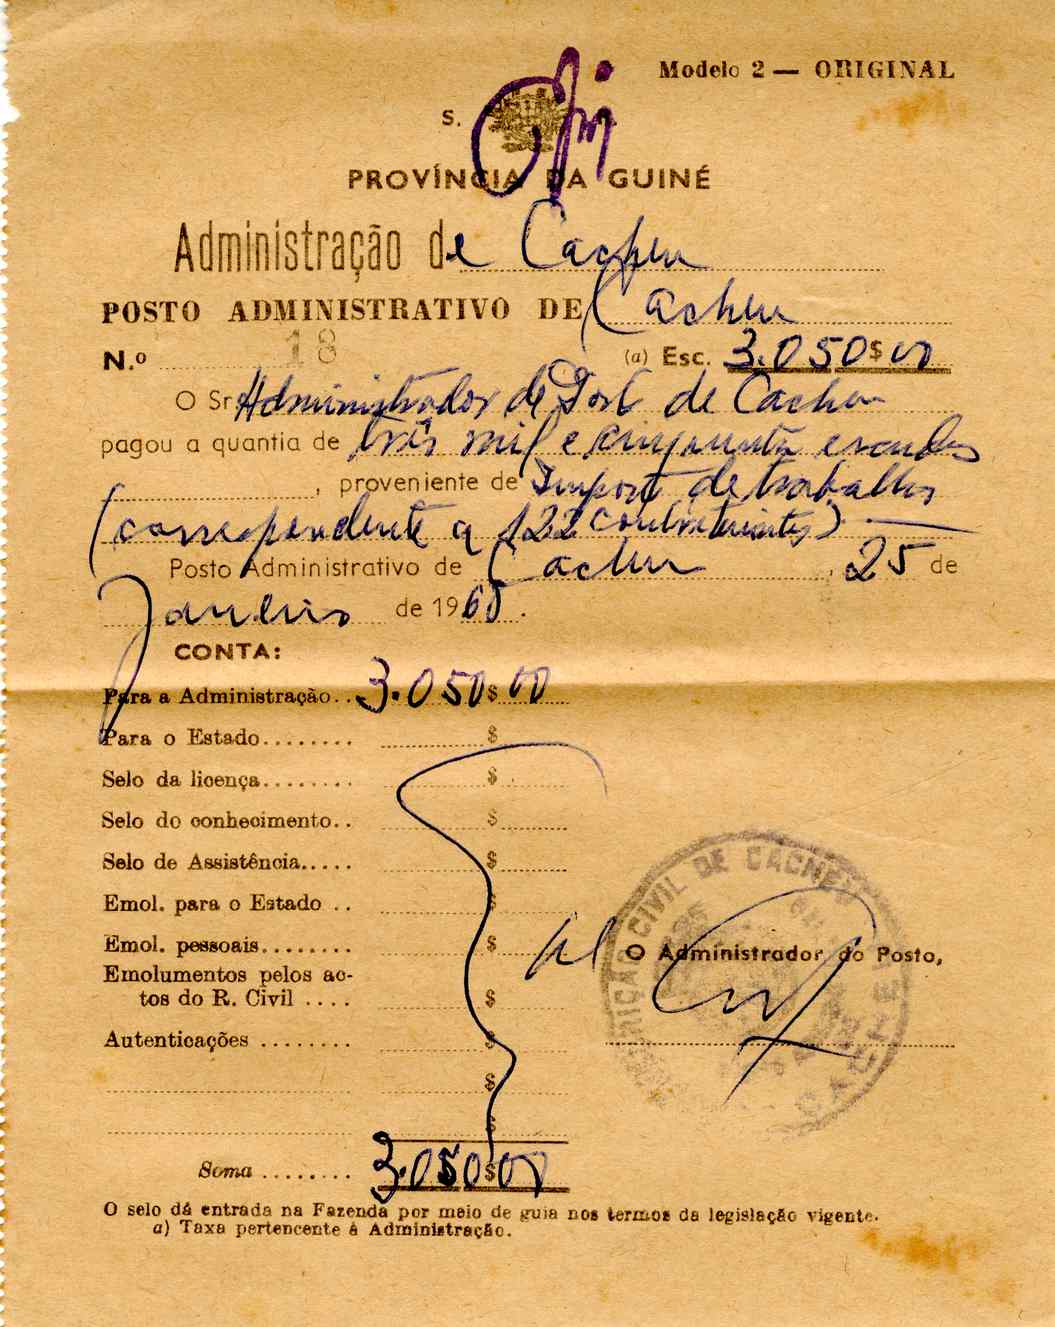 Modelo 2 — ORIGINAL
S.
PROVÍNCIA DA GUINÉ
Administração de Cacheu
POSTO ADMINISTRATIVO DE Cacheu
N.º 18 (a) Esc. 3.050$00
O Sr. Administrador do Posto de Cacheu
pagou a quantia de três mil e cinquenta escudos
, proveniente de Import. de trabalhos
(correspondente a 122 contribuintes)
Posto Administrativo de Cacheu, 25 de
Janeiro de 1960.
CONTA:
Para a Administração.. 3.050$00
Para o Estado........ $
Selo da licença........ $
Selo do conhecimento.. $
Selo de Assistência..... $
Emol. para o Estado .. $
Emol. pessoais........ $
Emolumentos pelos ac-
tos do R. Civil .... $
O Administrador do Posto,
CIVIL DE CACHEU
CACHEU
Autenticações ........ $
$
$
Soma ........ 3.050$00
O selo dá entrada na Fazenda por meio de guia nos termos da legislação vigente.
a) Taxa pertencente à Administração.